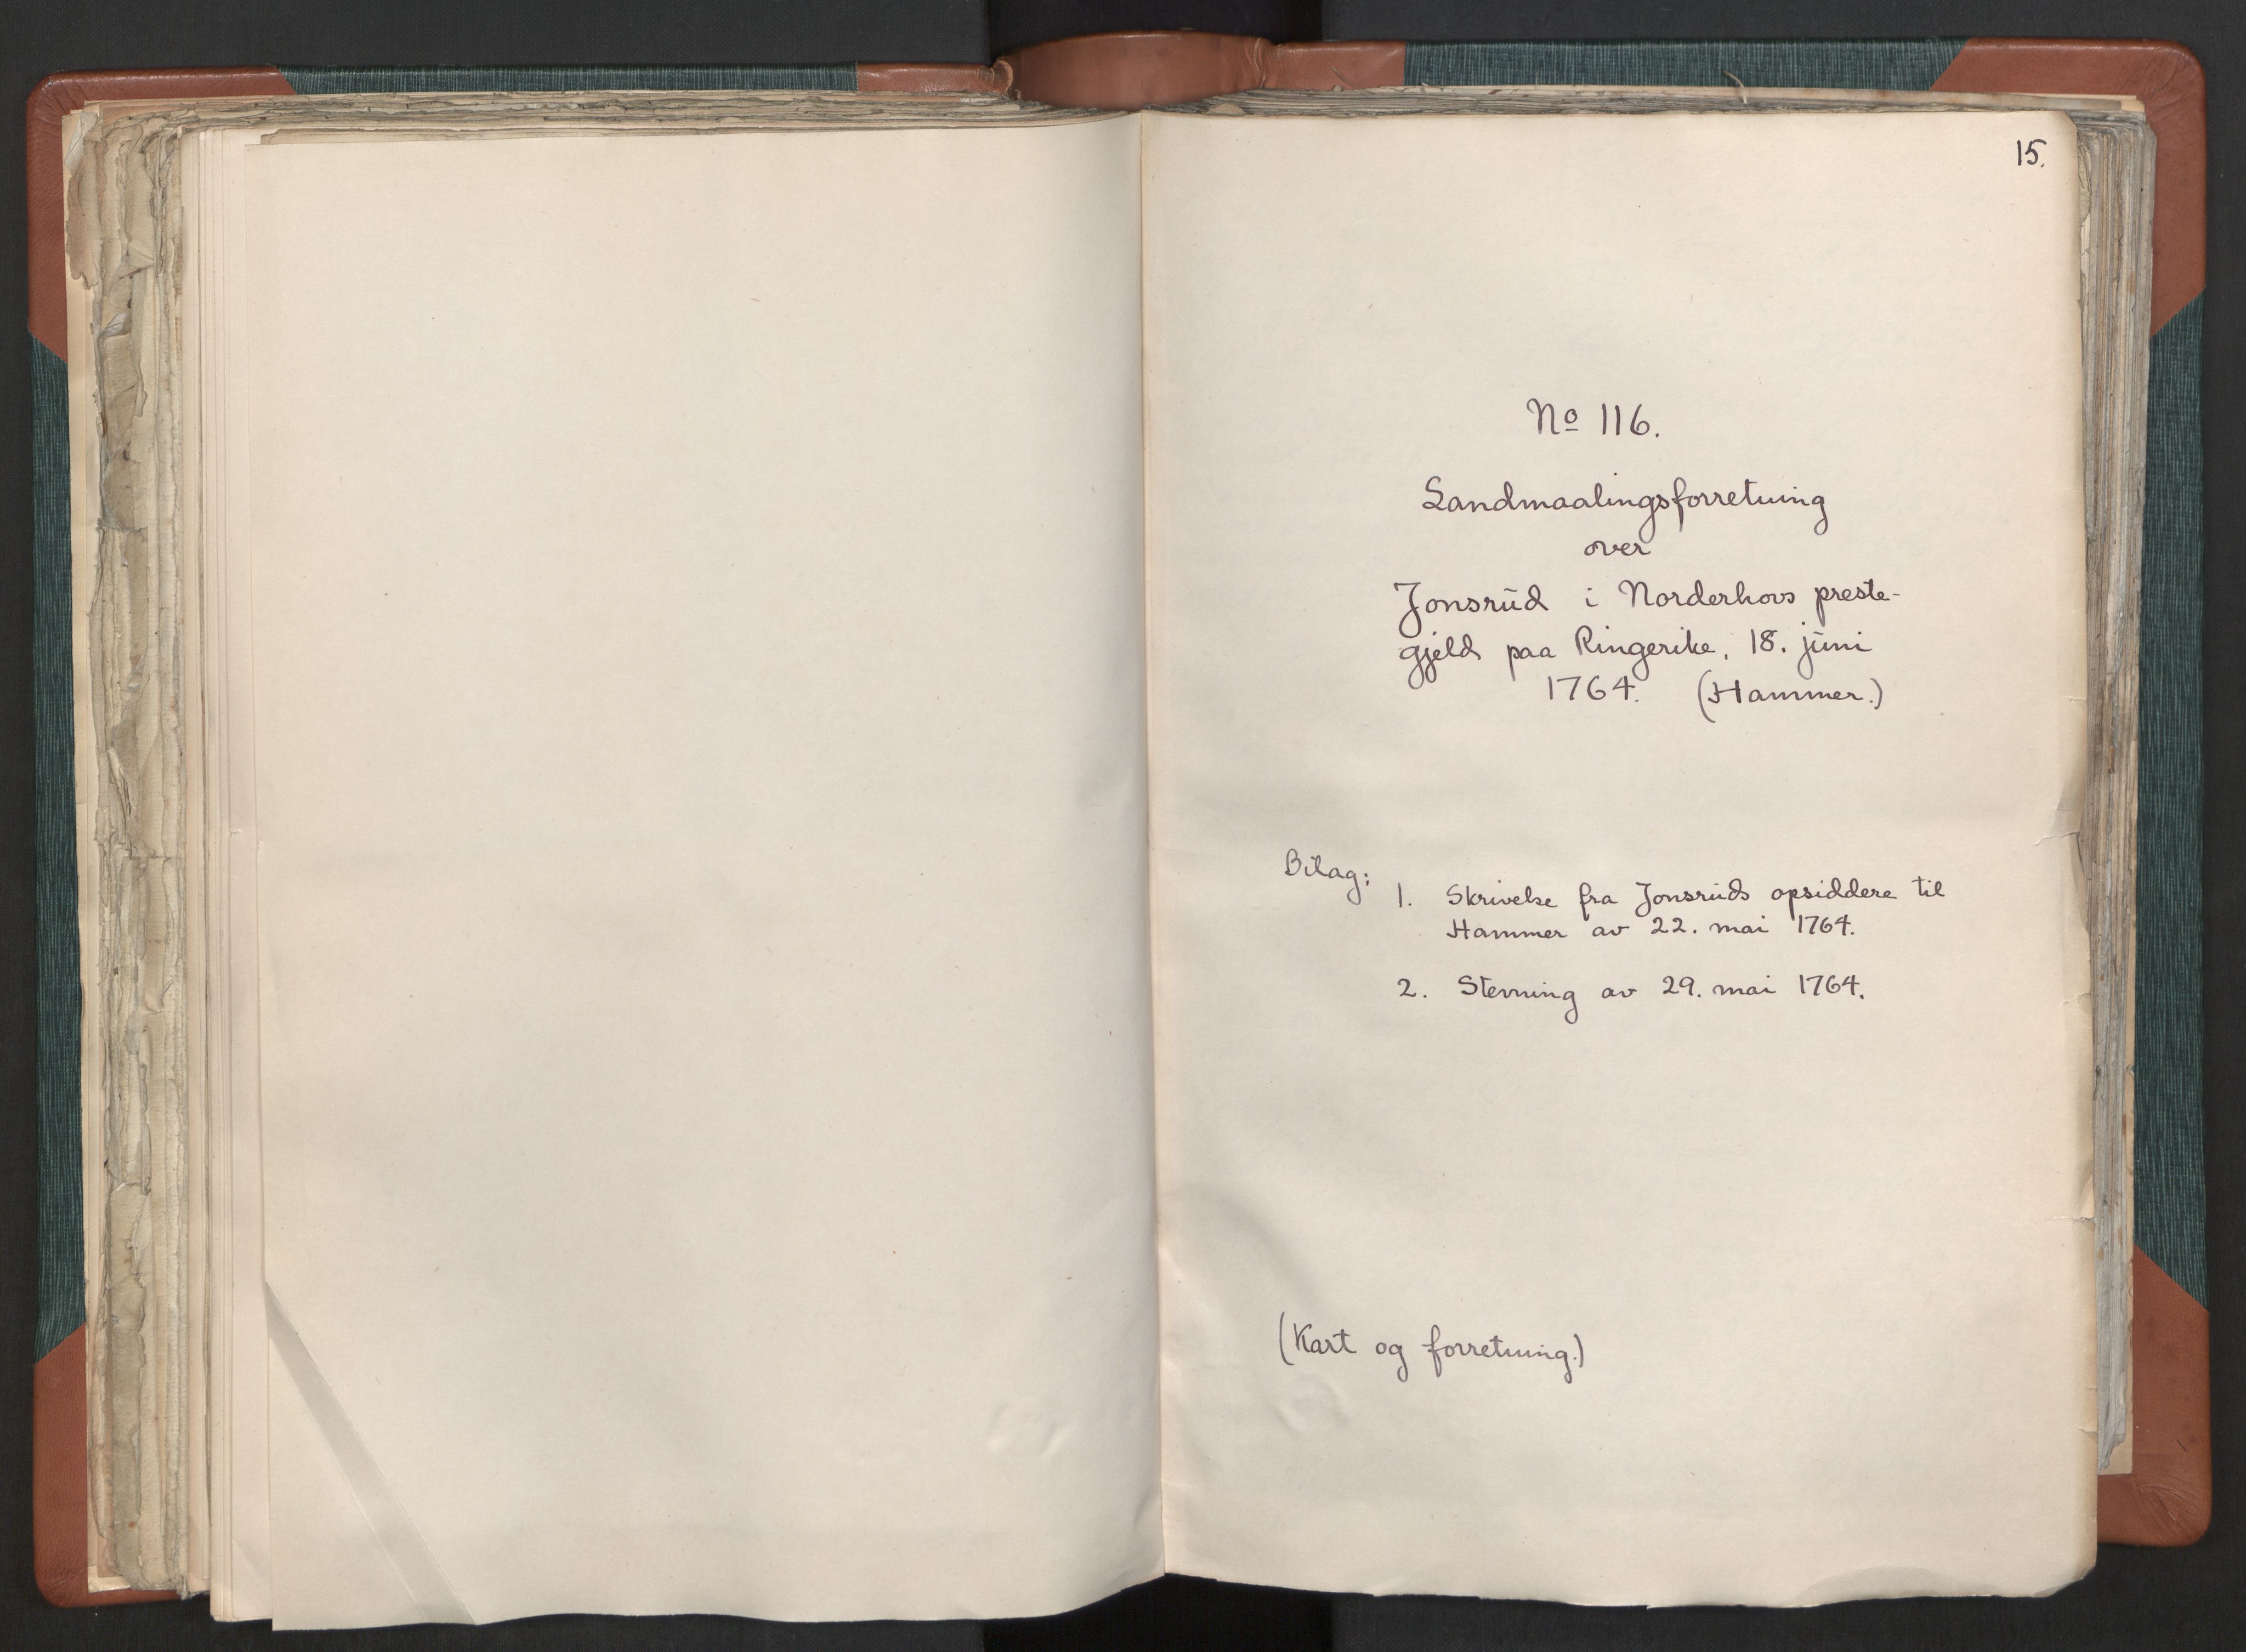 15.
No 116.
Landmaalingsforretning
over
Jonsrud i Norderhovs preste-
gjeld paa Ringerike, 18. juni
1764. (Hammer.)
Bilag:
1. Skrivelse fra Jonsruds opsiddere til
Hammer av 22. mai 1764.
2. Stevning av 29. mai 1764.
(Kart og forretning.)